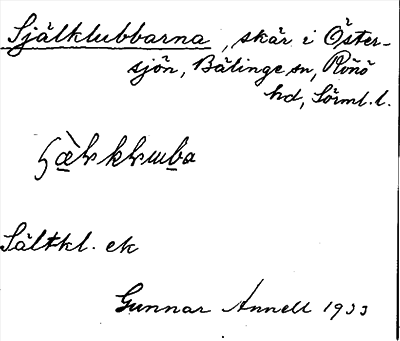 Själklubbarna, skär i Öster-
sjön, Bälinge sn, Rönö
hd, Sörml. l.
Sältkl. ek
Gunnar Annell 1933